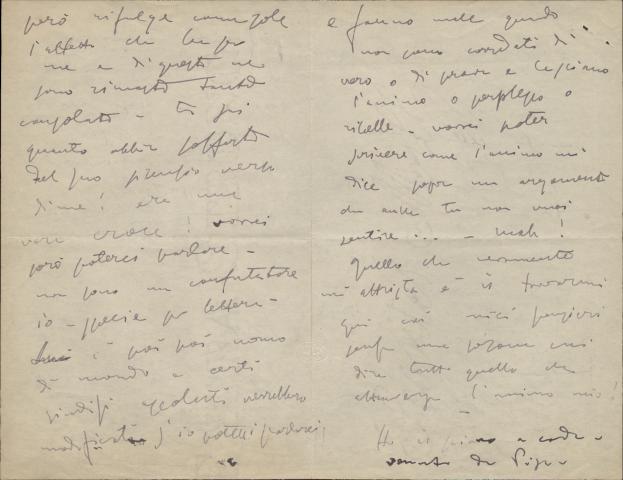 però rifulge come sole
l'affetto che hai per
me e di questo ne
sono rimasto tanto
consolato - tu sai
quanto abbia sofferto
del suo silenzio verso
di me! era una
vera croce! vorrei
però poterci parlare -
non sono un confutatore
io - specie per lettera -
Lui è poi poi uomo
di mondo e certi
giudizi verrebbero
modificati s'io potessi parlarci!
e fanno male quando
non sono corredati di
vero o di prove e lasciano
l'animo o perplesso o
ribelle - vorrei poter
scrivere come l'animo mi
dice sopra un argomento
che anche tu non vuoi
sentire ... - mah!
Quello che veramente
m'attrista è il trovarmi
qui coi miei pensieri
senza una persona cui
dire tutto quello che
attraversa l'animo mio!
Ho il piano a coda
venuto da Pisa -